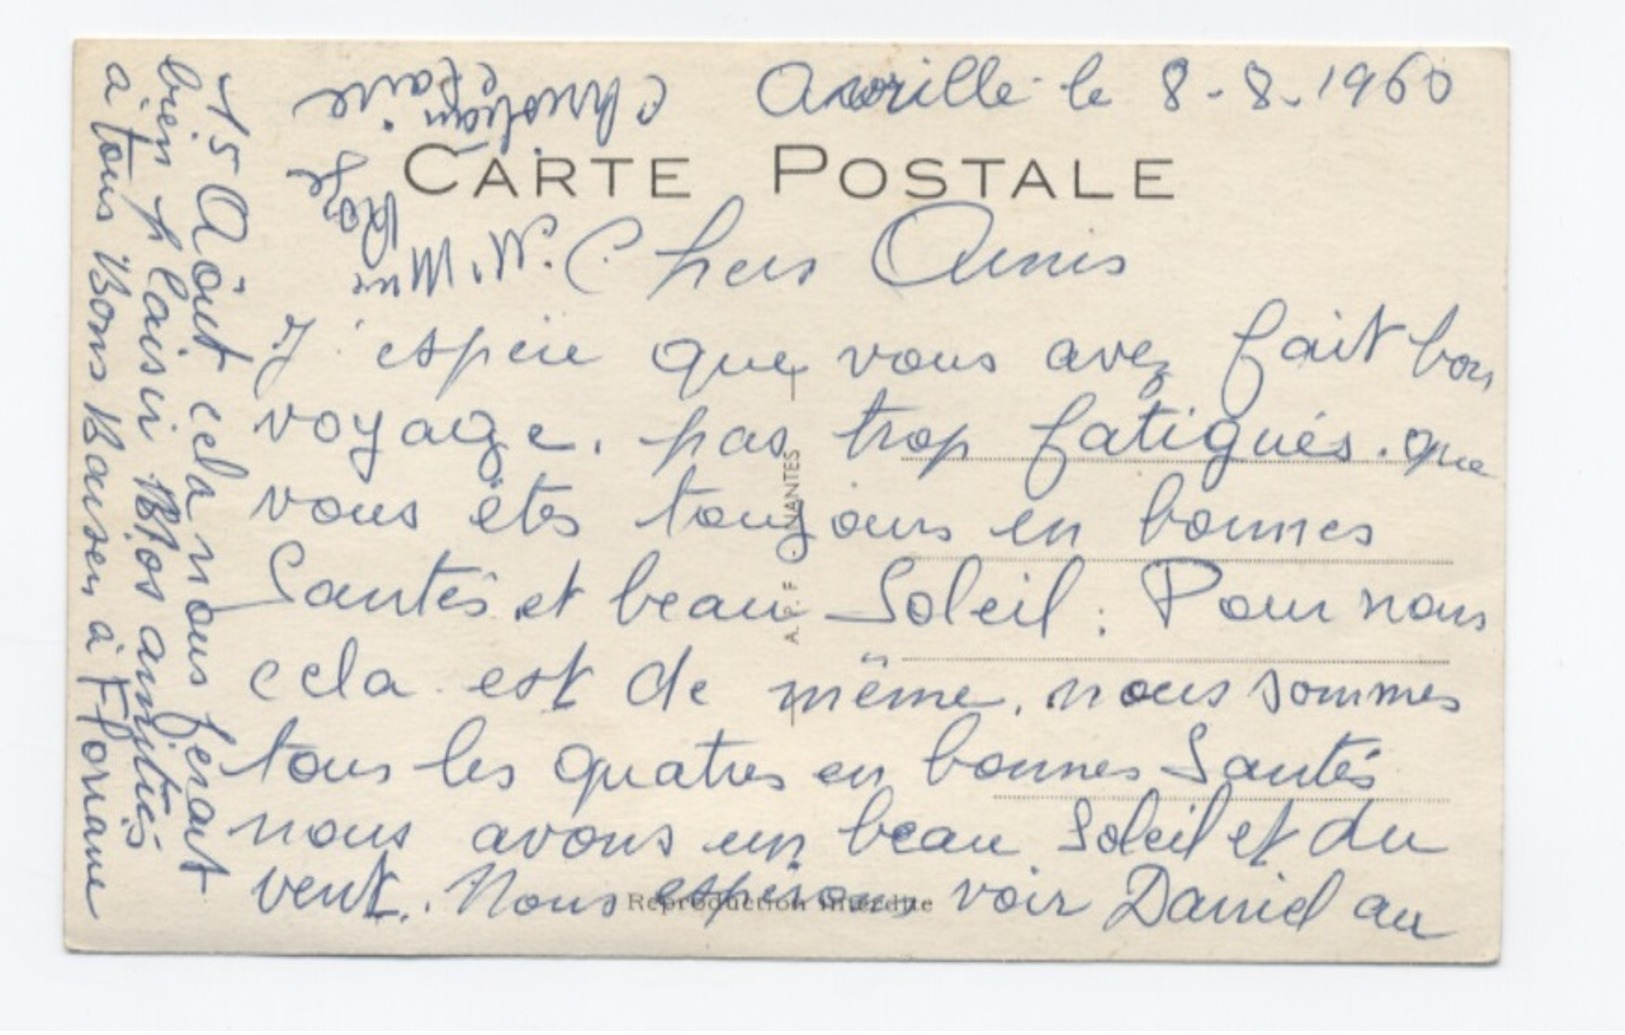 Avrillé le 8-8-1960
CARTE POSTALE
Chers Amis
J'espère que vous avez fait bon
voyage. pas trop fatigués. que
vous êtes toujours en bonnes
Santés et beau Soleil : Pour nous
cela est de même. nous sommes
tous les quatres en bonnes Santés
nous avons un beau Soleil et du
vent. Nous espérons voir Daniel au
15 Aôut cela nous ferait
bien plaisir Nos amitiés
à tous Bons Baisers à Floriane
M. Mme
Rozé
Christian
Claire
A. P. F. NANTES
Reproduction Interdite